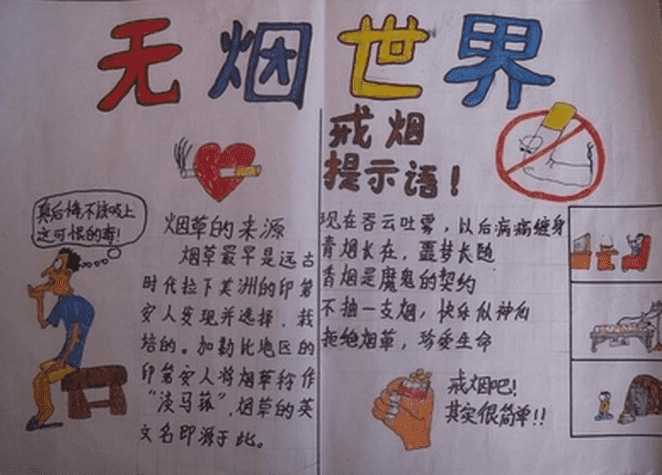 无烟世界
真后悔不该吸上
这可恨的毒!
烟草的来源
烟草最早是远古
时代拉下美洲的印第
安人发现并选择、栽
培的。加勒比地区的
印第安人将烟草称作
“淡马菰”,烟草的英
文名即源于此。
戒烟
提示语!
现在吞云吐雾,以后病痛缠身
青烟长在,噩梦长随
香烟是魔鬼的契约
不抽一支烟,快乐似神仙
拒绝烟草,珍爱生命
戒烟吧!
其实很简单!!